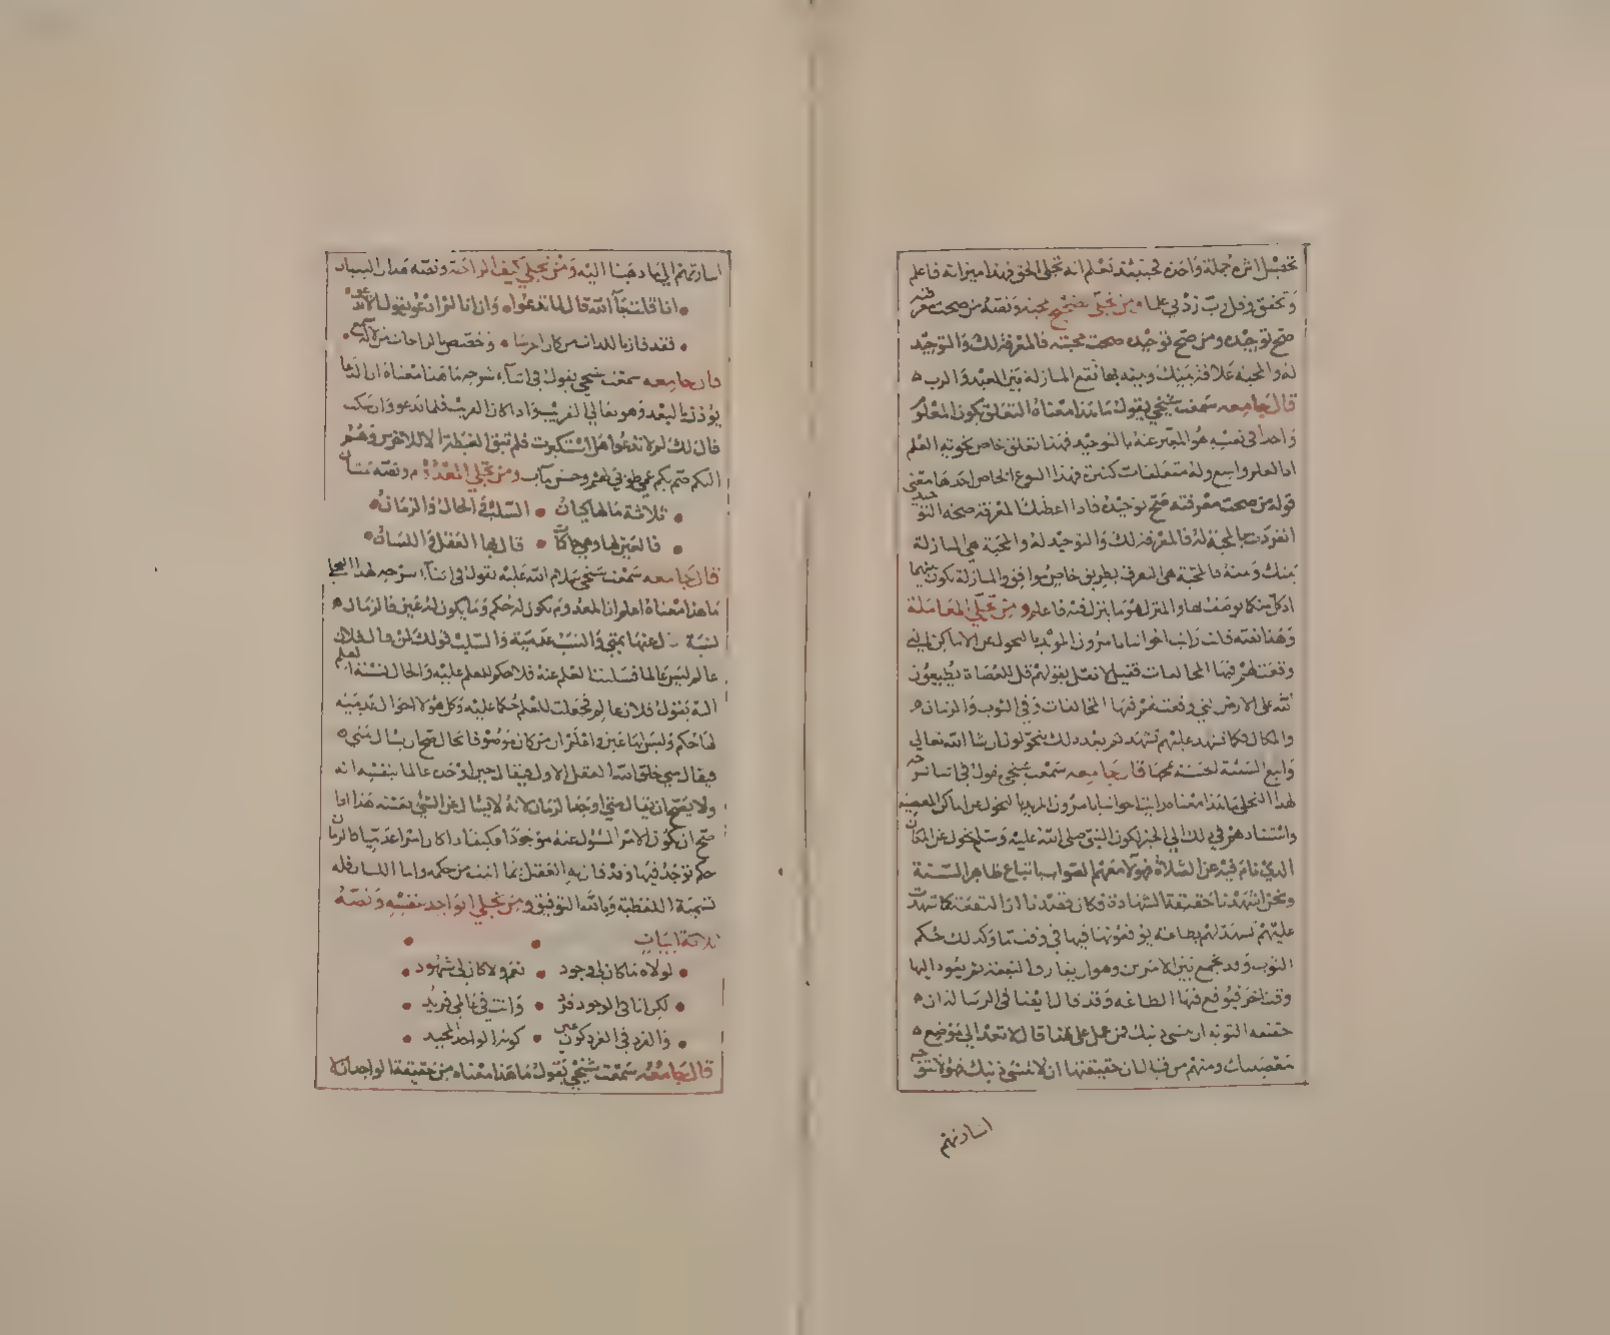 تحصل اثره جملة واحدة فحينئذ تعلم انه تجلى الحق فهذا ميزانه فاعلم
وتحقق وقل رب زدني علما ومن تجلي تصحيح المحبة ونصه من صحت معرفته
صح توحيده ومن صح توحيده صحت محبته فالمعرفة لك والتوحيد
له والمحبة علاقة بينك وبينه بها تقع المنازلة بين العبد والرب
قال جامعه سمعت شيخي يقول ما هذا معناه التعلق بكون المعلوم
واحدا في نفسه هو المعبر عنه بالتوحيد فهذا تعلق خاص نحوته العلم
اذ العلم واسع وله متعلقات كثيرة فهذا النوع الخاص احدها معنى
قوله من صحت معرفته صح توحيده فاذا اعطتك المعرفة صحة التوحيد
انفردت بالمحبة له فالمعرفة لك والتوحيد له والمحبة هي المنازلة
بينك وبينه فالمحبة هي التعرف بطريق خاص موافق والمنازلة تكون بينهما
اذ كل منكما يوصف بها والمنزل هو ما ينزل فيه فاعلم ومن تجلي المعاملة
وهذا نصه قلت رايت اخواننا يامرون المريد بالتحول عن الاماكن التي
وقعت لهم فيها المخالفات فقيل لا تقل بقولهم قل للعصاة يطيعون
الله على الارض التي وقعت لهم فيها المخالفات وفي الثوب والزمان
والمكان فكما تشهد عليهم تشهد لهم بعد ذلك يتحولون ان شا الله تعالى
واتبع السيئة الحسنة تمحها قال جامعه سمعت شيخي يقول في اثنا شرحه
لهذا التجلي ما هذا معناه رايت اخواننا يامرون المريد بالتحول عن اماكن المعصية
واستنادهم في ذلك الى الخبر لكون النبي صلى الله عليه وسلم تحول عن المكان
الذي نام فيه عن الصلاة فهولا معهم الصواب باتباع ظاهر السنة
ونحن اشهدنا حقيقة الشهادة فكان قصدنا ان البقعة كما تشهد
عليهم تشهد لهم بطاعة يوقعونها فيها في وقت ما وكذلك حكم
الثوب وقد نجمع بين الامرين وهو ان يفارق البقعة ثم يعود اليها
وقتا اخر فيوقع فيها الطاعة وقد قال لا يقنا في الرسالة ان
حقيقة التوبة ان تنسى ذنبك فمن عمل على هذا قال لا تعد الى موضع
معصيتك ومنهم من قال ان حقيقتها ان لا تنسى ذنبك فهولا تتوجه
اسارتهم
اسارتهم الى ما ذهبنا اليه ومن تجلي كيف الراحة ونصه هذان البيتان
اذا قلت يا الله قال لما تدعو وان انا لم ادعو يقول الا تدعو
فقد فاز باللذات من كان اخرسا وخصص بالراحات من لا له سمع
قال جامعه سمعت شيخي يقول في اثناء شرحه ما هذا معناه ان الندا
يوذن بالبعد وهو تعالى القريب واذا كان القريب فلما تدعو وان سكت
قال لك لم لا تدعو هل استكبرت فلم تبق الغبطة الا للاخرس وهم
البكم صم بكم عمي طوبى لهم وحسن مآب ومن تجلي المعدوم ونصه بيتان
ثلاثة ما لها كيان السلب في الحال والزمان
فالعين لها وهي حاكمات قال بها العقل واللسان
قال جامعه سمعت شيخي سلام الله عليه يقول في اثناء شرحه لهذا التجلي
ما هذا معناه اعلم ان المعدوم تكون له حكم وما يكون له عين فالزمان
نسبة يسل عنها بمتى والنسب عدمية والسلب قولك لمن قال فلان
عالم ليس عالما فسلبنا العلم عنه فلا حكم للعلم عليه والحال نسبة العلم
اليه بقول فلان عالم فجعلت للعلم حكما عليه وكل هولا احوال عدمية
لها حكم وليس لها عين واعلم ان من كان موصوفا بحال صح ان يسال بمتى
فيقال متى خلق الله العقل الاول فيقال حين اوجده عالما بنفسه انه
ولا يصح ان يقال متى اوجد الزمان لانه لا يسال عن الشي بنفسه هذا اذا
صح ان يكون الامر المسول عنه موجودا فكيف اذا كان امرا عدميا كالزمان
حكم توجد فيها وقد قال به العقل بما اثبت من حكمه واما اللسان فله
تسمية اللفظية وبالله التوفيق ومن تجلي الواحد بنفسه ونصه
ثلاثة ابيات
لولاه ما كان لي وجود نعم ولا كان لي شهود
لكن انا في الوجود فرد وانت في عالمي فريد
والفرد في الفرد كون عين كونه الواحد المجيد
قال جامعه سمعت شيخي يقول ما هذا معناه من حقيقة الواحد ان لا